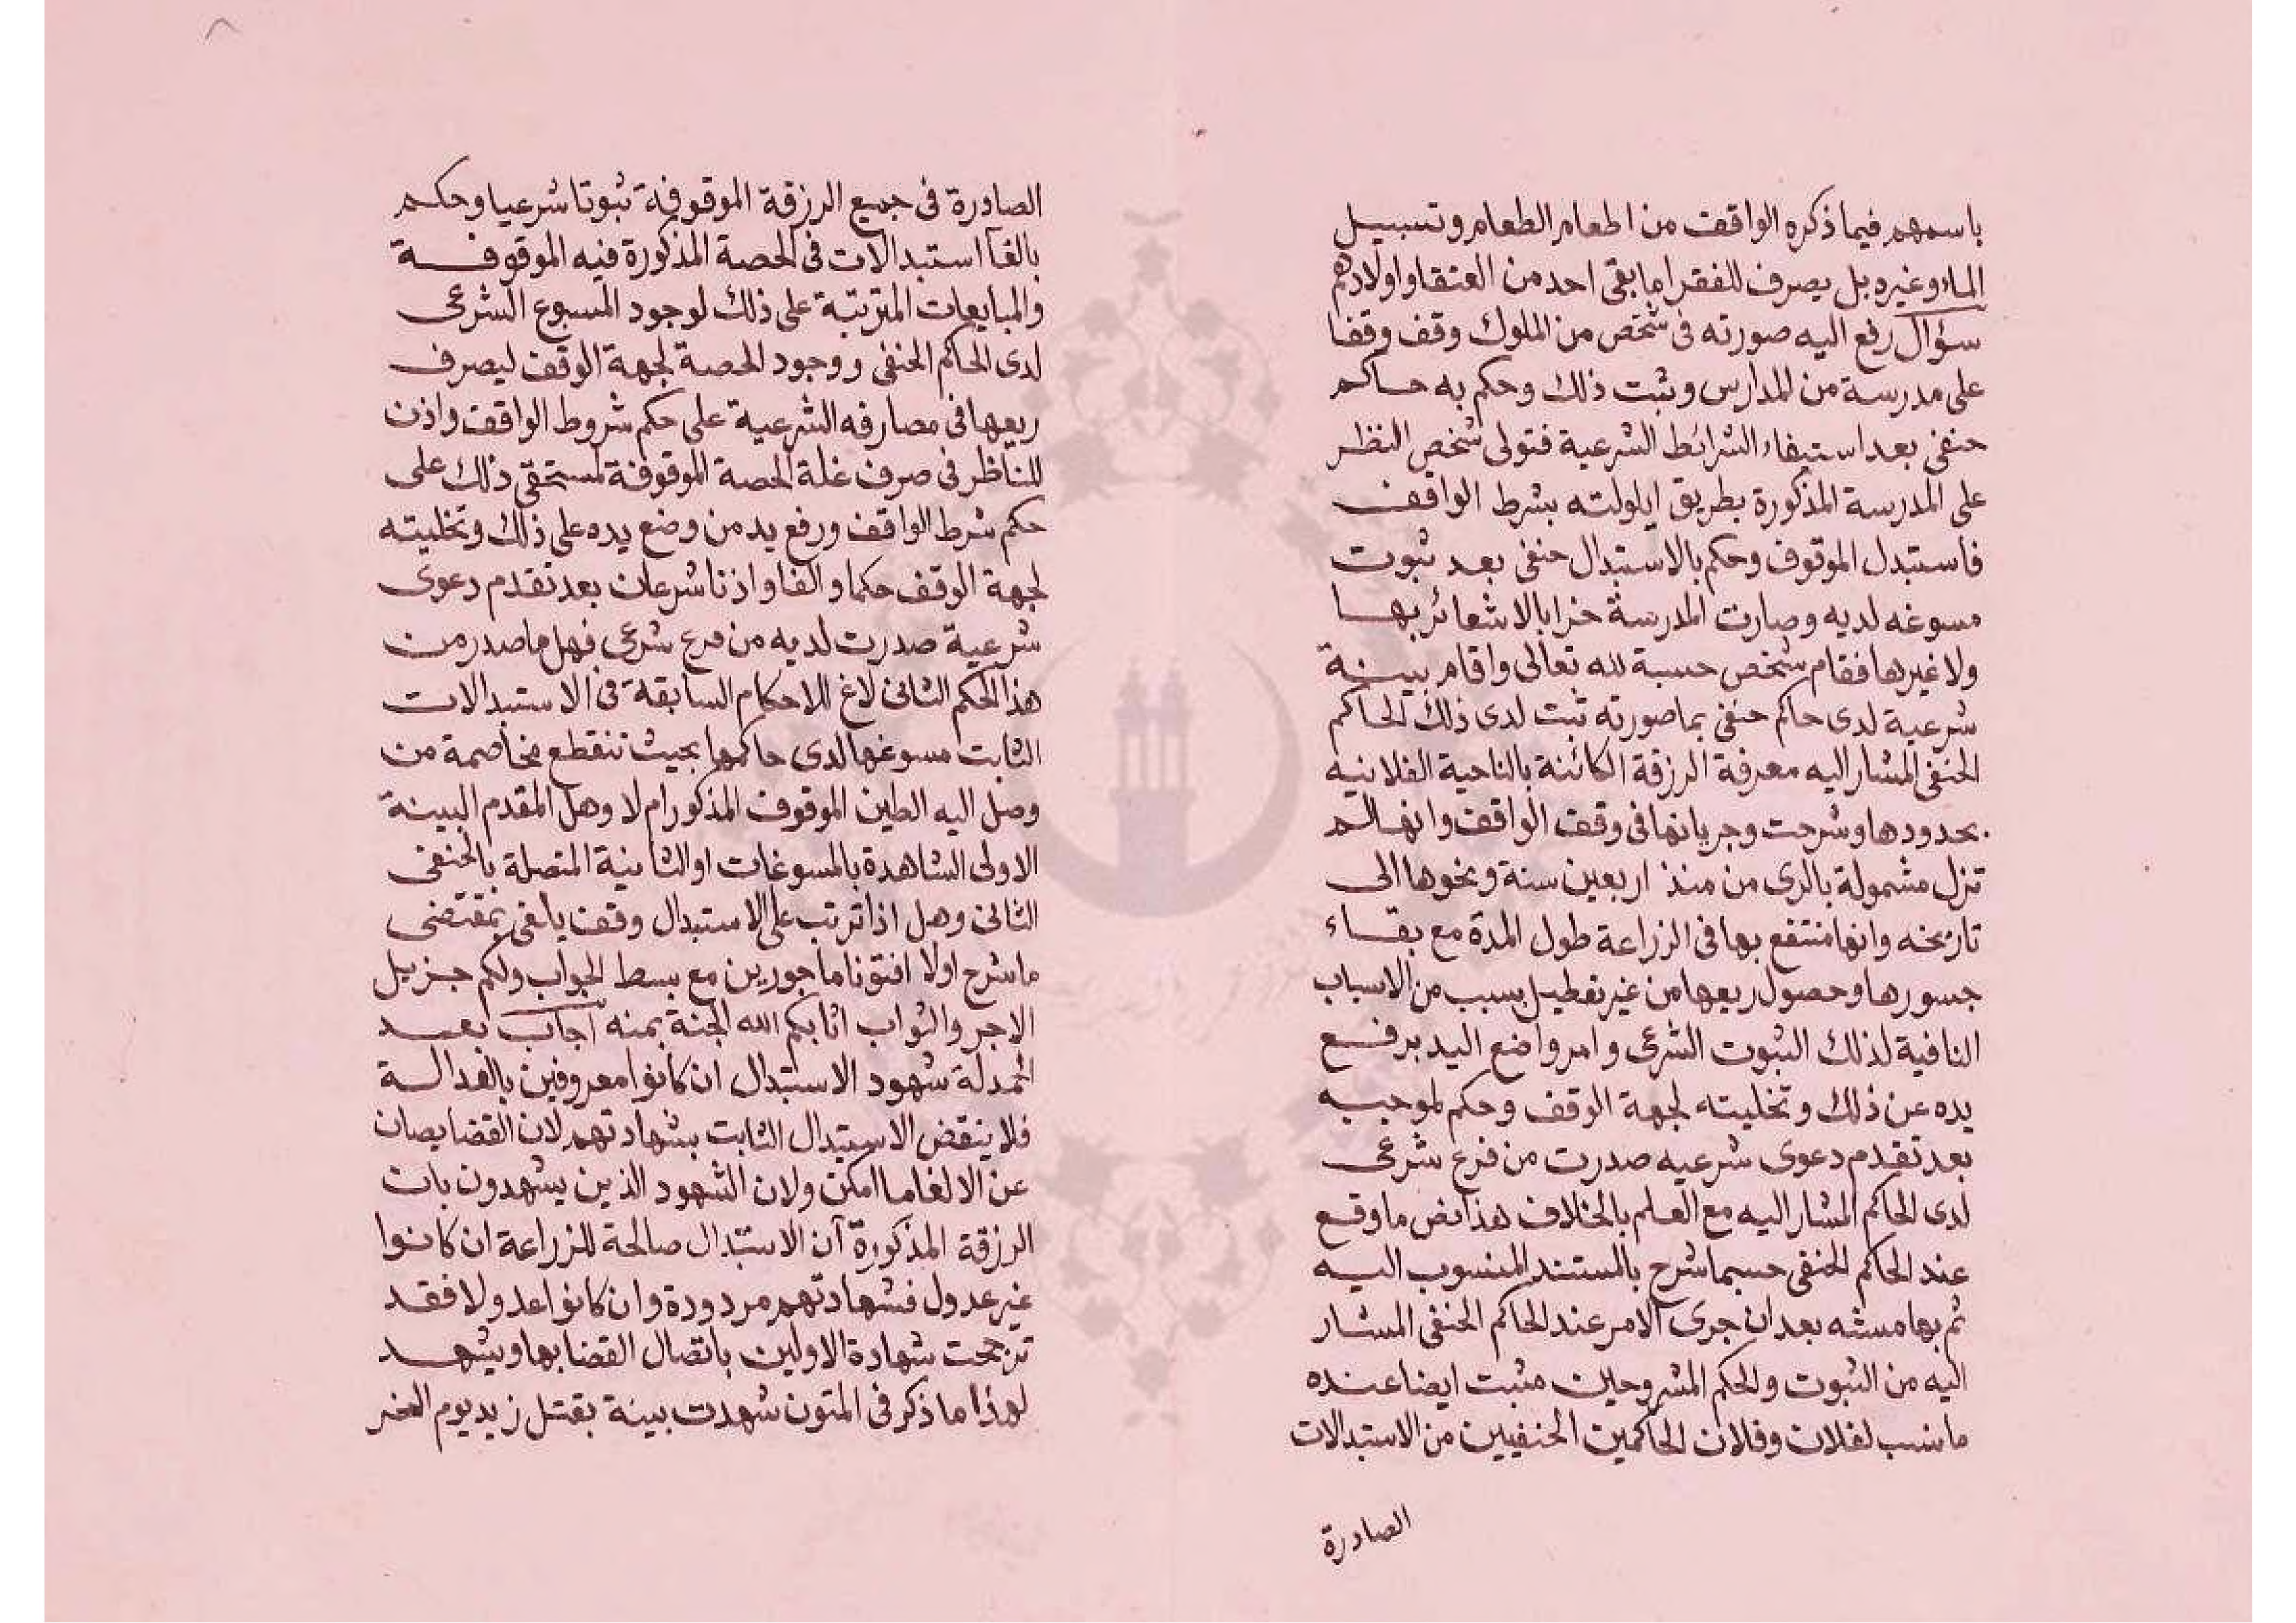 باسمهم فيما ذكره الواقف من اطعام الطعام وتسبيل
الماء وغيره بل يصرف للفقرا ما بقى احد من العتقا واولادهم
سؤال رفع اليه صورته فى شخص من الملوك وقف وقفا
على مدرسة من المدارس وثبت ذلك وحكم به حاكم
حنفى بعد استيفاء الشرائط الشرعية فتولى شخص النظر
على المدرسة المذكورة بطريق ايلولته بشرط الواقف
فاستبدل الموقوف وحكم بالاستبدال حنفى بعد ثبوت
مسوغه لديه وصارت المدرسة خرابا لا شعائر بها
ولا غيرها فقام شخص حسبة لله تعالى واقام بينة
شرعية لدى حاكم حنفى بما صورته ثبت لدى ذلك الحاكم
الحنفى المشار اليه معرفة الرزقة الكائنة بالناحية الفلانيه
بحدودها وشرحت وجريانها فى وقف الواقف وانها لم
تزل مشمولة بالرى من منذ اربعين سنة ونحوها الى
تاريخه وانها منتفع بها فى الزراعة طول المدة مع بقاء
جسورها وحصول ريعها من غير تعطيل بسبب من الاسباب
النافية لذلك الثبوت الشرعى وامر واضع اليد برفع
يده عن ذلك وتخليته لجهة الوقف وحكم بموجبه
بعد تقدم دعوى شرعيه صدرت من فرع شرعى
لدى الحاكم المشار اليه مع العلم بالخلاف هذا نص ما وقع
عند الحاكم الحنفى حسبما شرح بالمستند المنسوب اليه
ثم بهامشه بعد ان جرى الامر عند الحاكم الحنفى المشار
اليه من الثبوت والحكم المشروحين مثبت ايضا عنده
ما نسب لفلان وفلان الحاكمين الحنفيين من الاستبدالات
الصادرة
الصادرة فى جميع الرزقة الموقوفة ثبوتا شرعيا وحكم
بالغا استبدالات فى الحصة المذكورة فيه الموقوفة
والمبايعات المترتبة على ذلك لوجود المسوع الشرعى
لدى الحاكم الحنفى ووجود الحصة لجهة الوقف ليصرف
ريعها فى مصارفه الشرعية على حكم شروط الواقف واذن
للناظر فى صرف غلة الحصة الموقوفة لمستحقى ذلك على
حكم شرط الواقف ورفع يد من وضع يده على ذلك وتخليته
لجهة الوقف حكما والغا واذنا شرعان بعد تقدم دعوى
شرعية صدرت لديه من مرع شرعى فهل ما صدر من
هذا الحكم الثانى لاغ للاحكام السابقة فى الاستبدالات
الثابت مسوغها لدى حاكمها بحيث تنقطع مخاصمة من
وصل اليه الطين الموقوف المذكور ام لا وهل المقدم البينة
الاولى الشاهدة بالمسوغات او الثانية المتصلة بالحنفى
الثانى وهل اذا ترتب على الاستبدال وقف يلغى بمقتضى
ما شرح اولا افتونا ماجورين مع بسط الجواب ولكم جزيل
الاجر والثواب اثابكم الله الجنة بمنه اجاب بعد
الحمدلة شهود الاستبدال ان كانوا معروفين بالعدالة
فلا ينقض الاستبدال الثابت بشهادتهم لان القضا يصان
عن الالغا ما امكن ولان الشهود الذين يشهدون بان
الرزقة المذكورة آن الاستبدال صالحة للزراعة ان كانوا
غير عدول فشهادتهم مردودة وان كانوا عدولا فقد
ترجحت شهادة الاولين باتصال القضا بها ويشهد
لهذا ما ذكر فى المتون شهدت بينة بقتل زيد يوم النحر